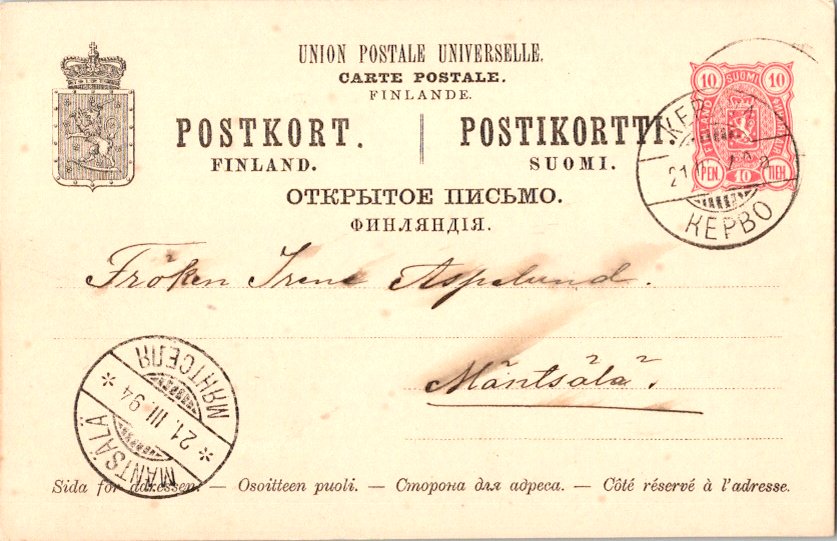 UNION POSTALE UNIVERSELLE.
CARTE POSTALE.
FINLANDE.
POSTKORT. POSTIKORTTI.
FINLAND. SUOMI.
ОТКРЫТОЕ ПИСЬМО.
ФИНЛЯНДІЯ.
10 SUOMI 10
PEN. 10 ПЕН.
КЕРВО
Fröken Irene Aspelund.
Mäntsälä.
МЯНТСЕЛЯ
21. III. 94
MÄNTSÄLÄ
Sida för adressen. — Osoitteen puoli. — Сторона для адреса. — Côté réservé à l'adresse.